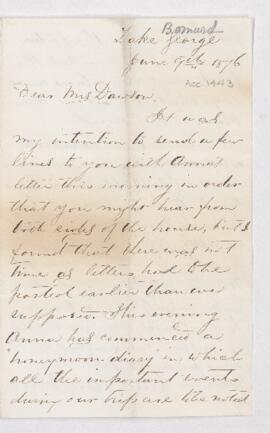 Bernard
Lake George
June 9th 1876
Acc 1443
Dear Mrs Dawson.
It was
my intention to send a few
lines to you with Anna's
letter this morning in order
that you might hear from
both ends of the house, but I
found that there was not
time as letters had to be
posted earlier than we
supposed. This evening
Anna has commenced a
"honeymoon diary" in which
all the important events
during our trip are to be noted